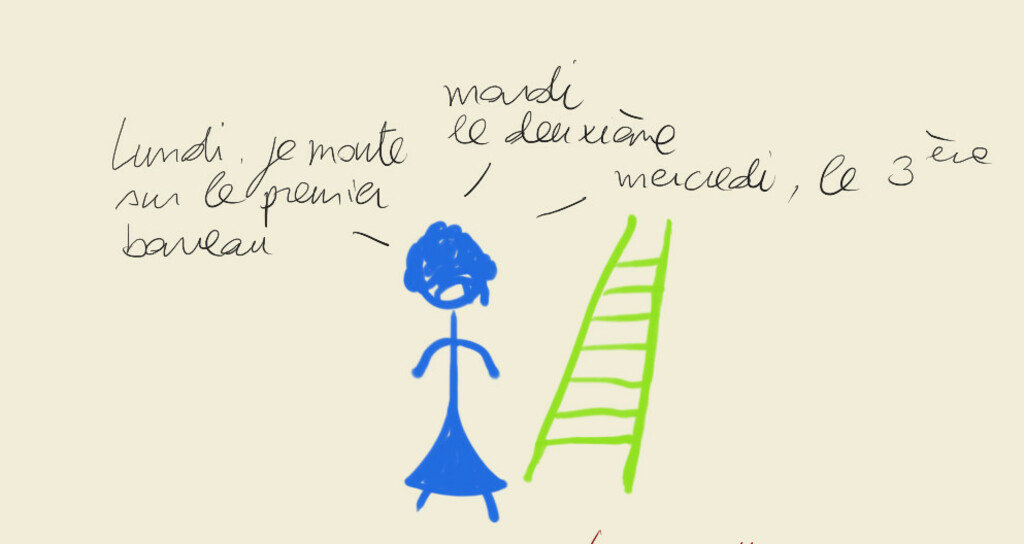 Lundi. je monte
sur le premier
barreau
mardi
le deuxième
mercredi, le 3ère